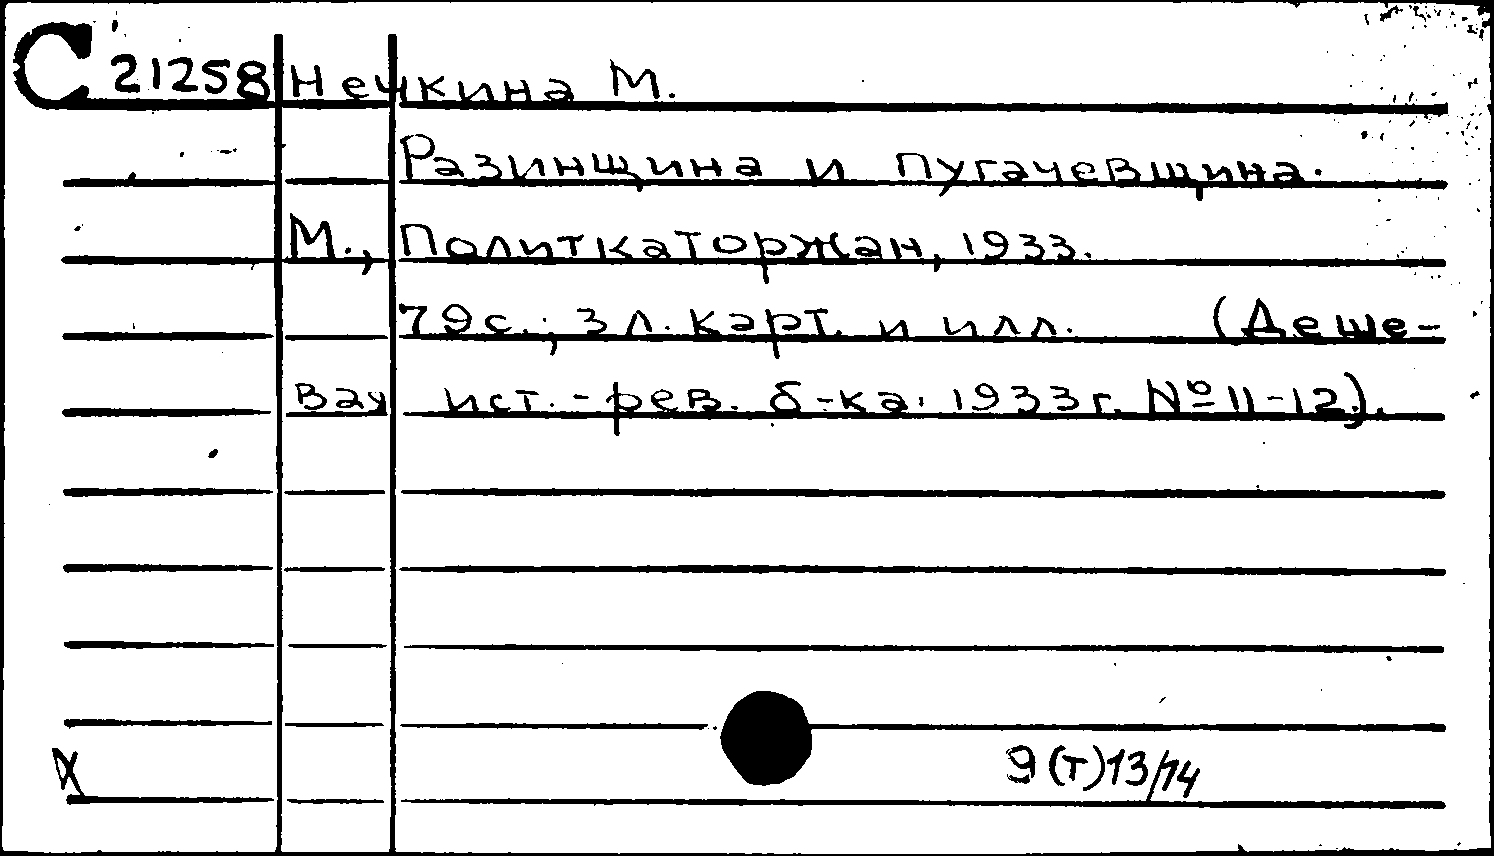 С 21258 Нечкина М.
Разинщина и пугачевщина.
М., Политкаторжан, 1933.
79 с.; 3 л. карт. и илл. (Деше-
вая ист.-рев. б-ка. 1933 г. № 11-12).
9(Т)13/14